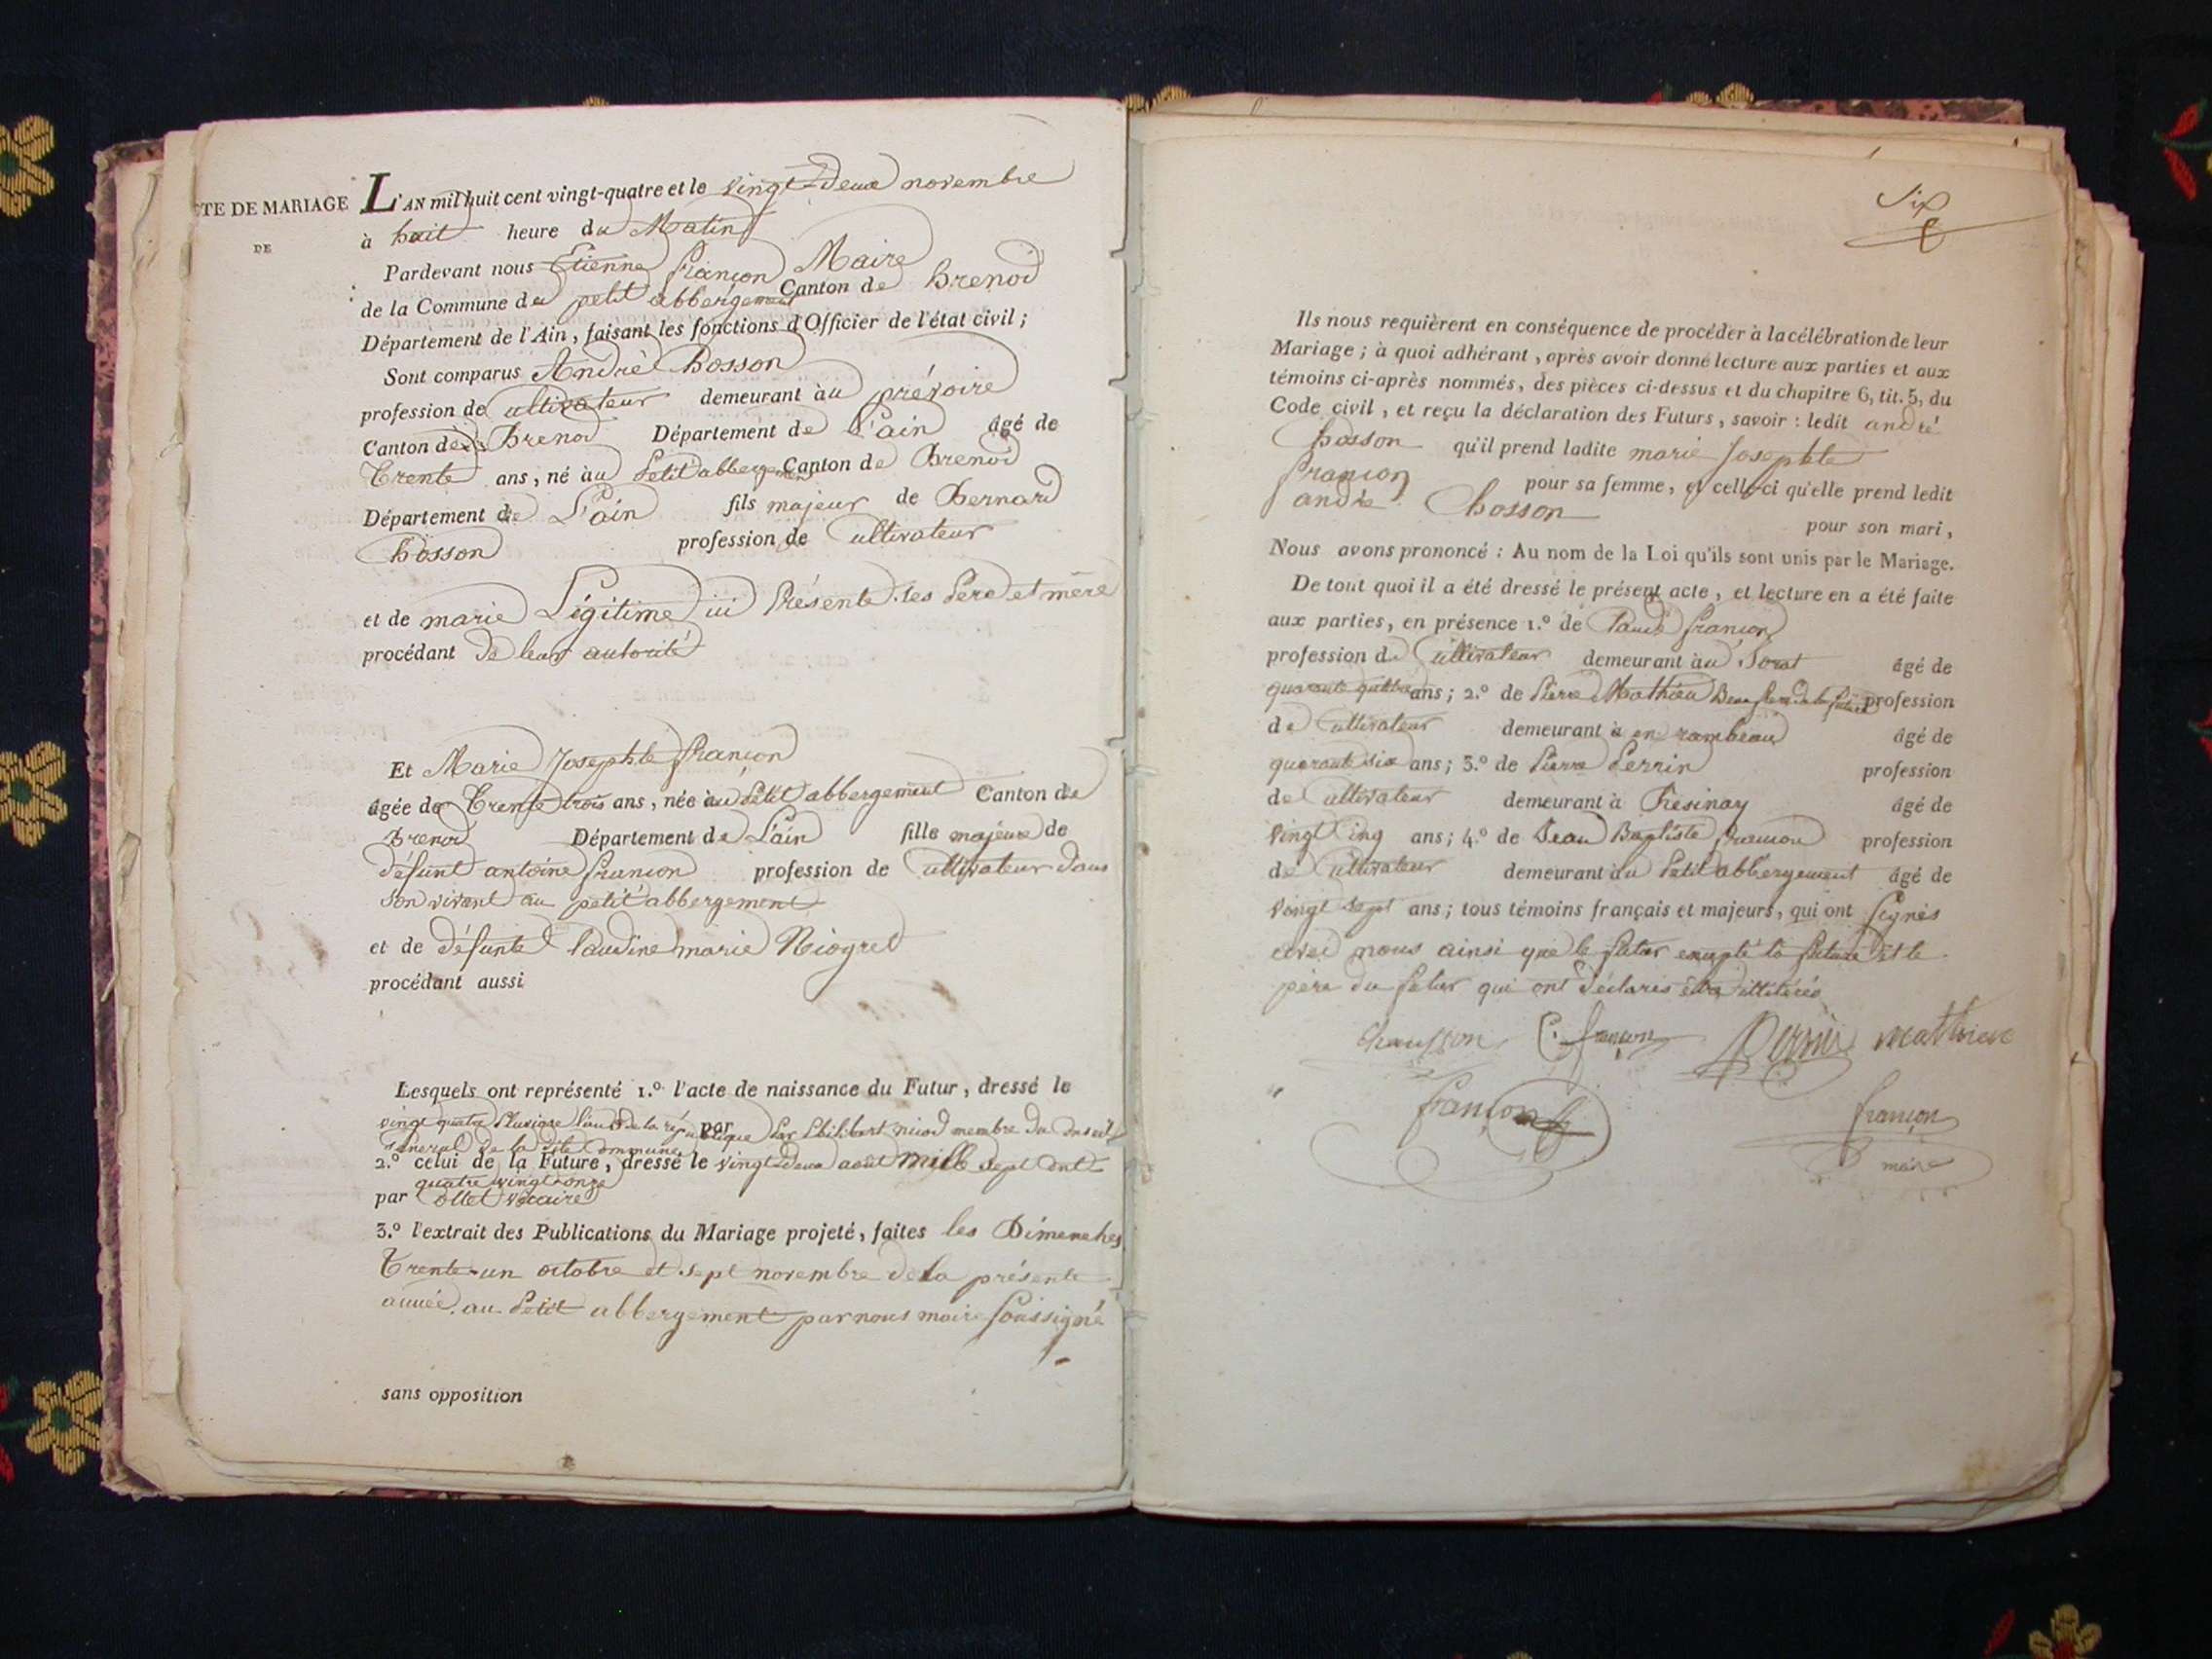 TE DE MARIAGE
DE
L'AN mil huit cent vingt-quatre et le vingt-deux novembre
à huit heure du Matin
Pardevant nous Etienne françon Maire
de la Commune du petit abbergement Canton de Brenod
Département de l'Ain, faisant les fonctions d'Officier de l'état civil;
Sont comparus André Chosson
profession de Cultivateur demeurant au prévoire
Canton de Brenod Département de L'ain âgé de
Trente ans, né au Petit abbergement Canton de Brenod
Département de L'ain fils majeur de Bernard
Chosson profession de Cultivateur
et de marie Légitime ici Présente les Père et mère
procédant de leur autorité
Et Marie Josephte françon
âgée de Trente trois ans, née au Petit abbergement Canton de
Brenod Département de L'ain fille majeure de
défunt antoine françon profession de Cultivateur dans
Son vivant au petit abbergement
et de défunte Claudine marie Niogret
procédant aussi
Lesquels ont représenté 1.º l'acte de naissance du Futur, dressé le
vingt quatre Pluviose de la république par Par Philibert niod membre du Conseil
General de la dite Commune
2.º celui de la Future, dressé le vingt deux août mille Sept Cent
quatre vingt onze
par Collet vicaire
3.º l'extrait des Publications du Mariage projeté, faites les Dimenches
Trente-un octobre et Sept novembre de la présente
année au Petit abbergement par nous maire Soussigné
sans opposition
Six
Ils nous requièrent en conséquence de procéder à la célébration de leur
Mariage; à quoi adhérant, après avoir donné lecture aux parties et aux
témoins ci-après nommés, des pièces ci-dessus et du chapitre 6, tit. 5, du
Code civil, et reçu la déclaration des Futurs, savoir: ledit andré
Chosson qu'il prend ladite marie Josephte
françon pour sa femme, et celle-ci qu'elle prend ledit
andré Chosson pour son mari,
Nous avons prononcé: Au nom de la Loi qu'ils sont unis par le Mariage.
De tout quoi il a été dressé le présent acte, et lecture en a été faite
aux parties, en présence 1.º de Claude françon
profession de Cultivateur demeurant au Sorat âgé de
quarante quatre ans; 2.º de Pierre Mathieu Beau frere de la future profession
de Cultivateur demeurant à en rambeau âgé de
quarante six ans; 3.º de Pierre Perrin profession
de Cultivateur demeurant à Chesinay âgé de
Vingt cinq ans; 4.º de Jean Baptiste françon profession
de Cultivateur demeurant au Petit abbergement âgé de
Vingt Sept ans; tous témoins français et majeurs, qui ont Signés
avec nous ainsi que le futur excepté la future et le
père du futur qui ont déclarés être illitérés
Chausson C. françon Perrin mathieu
françon françon
maire